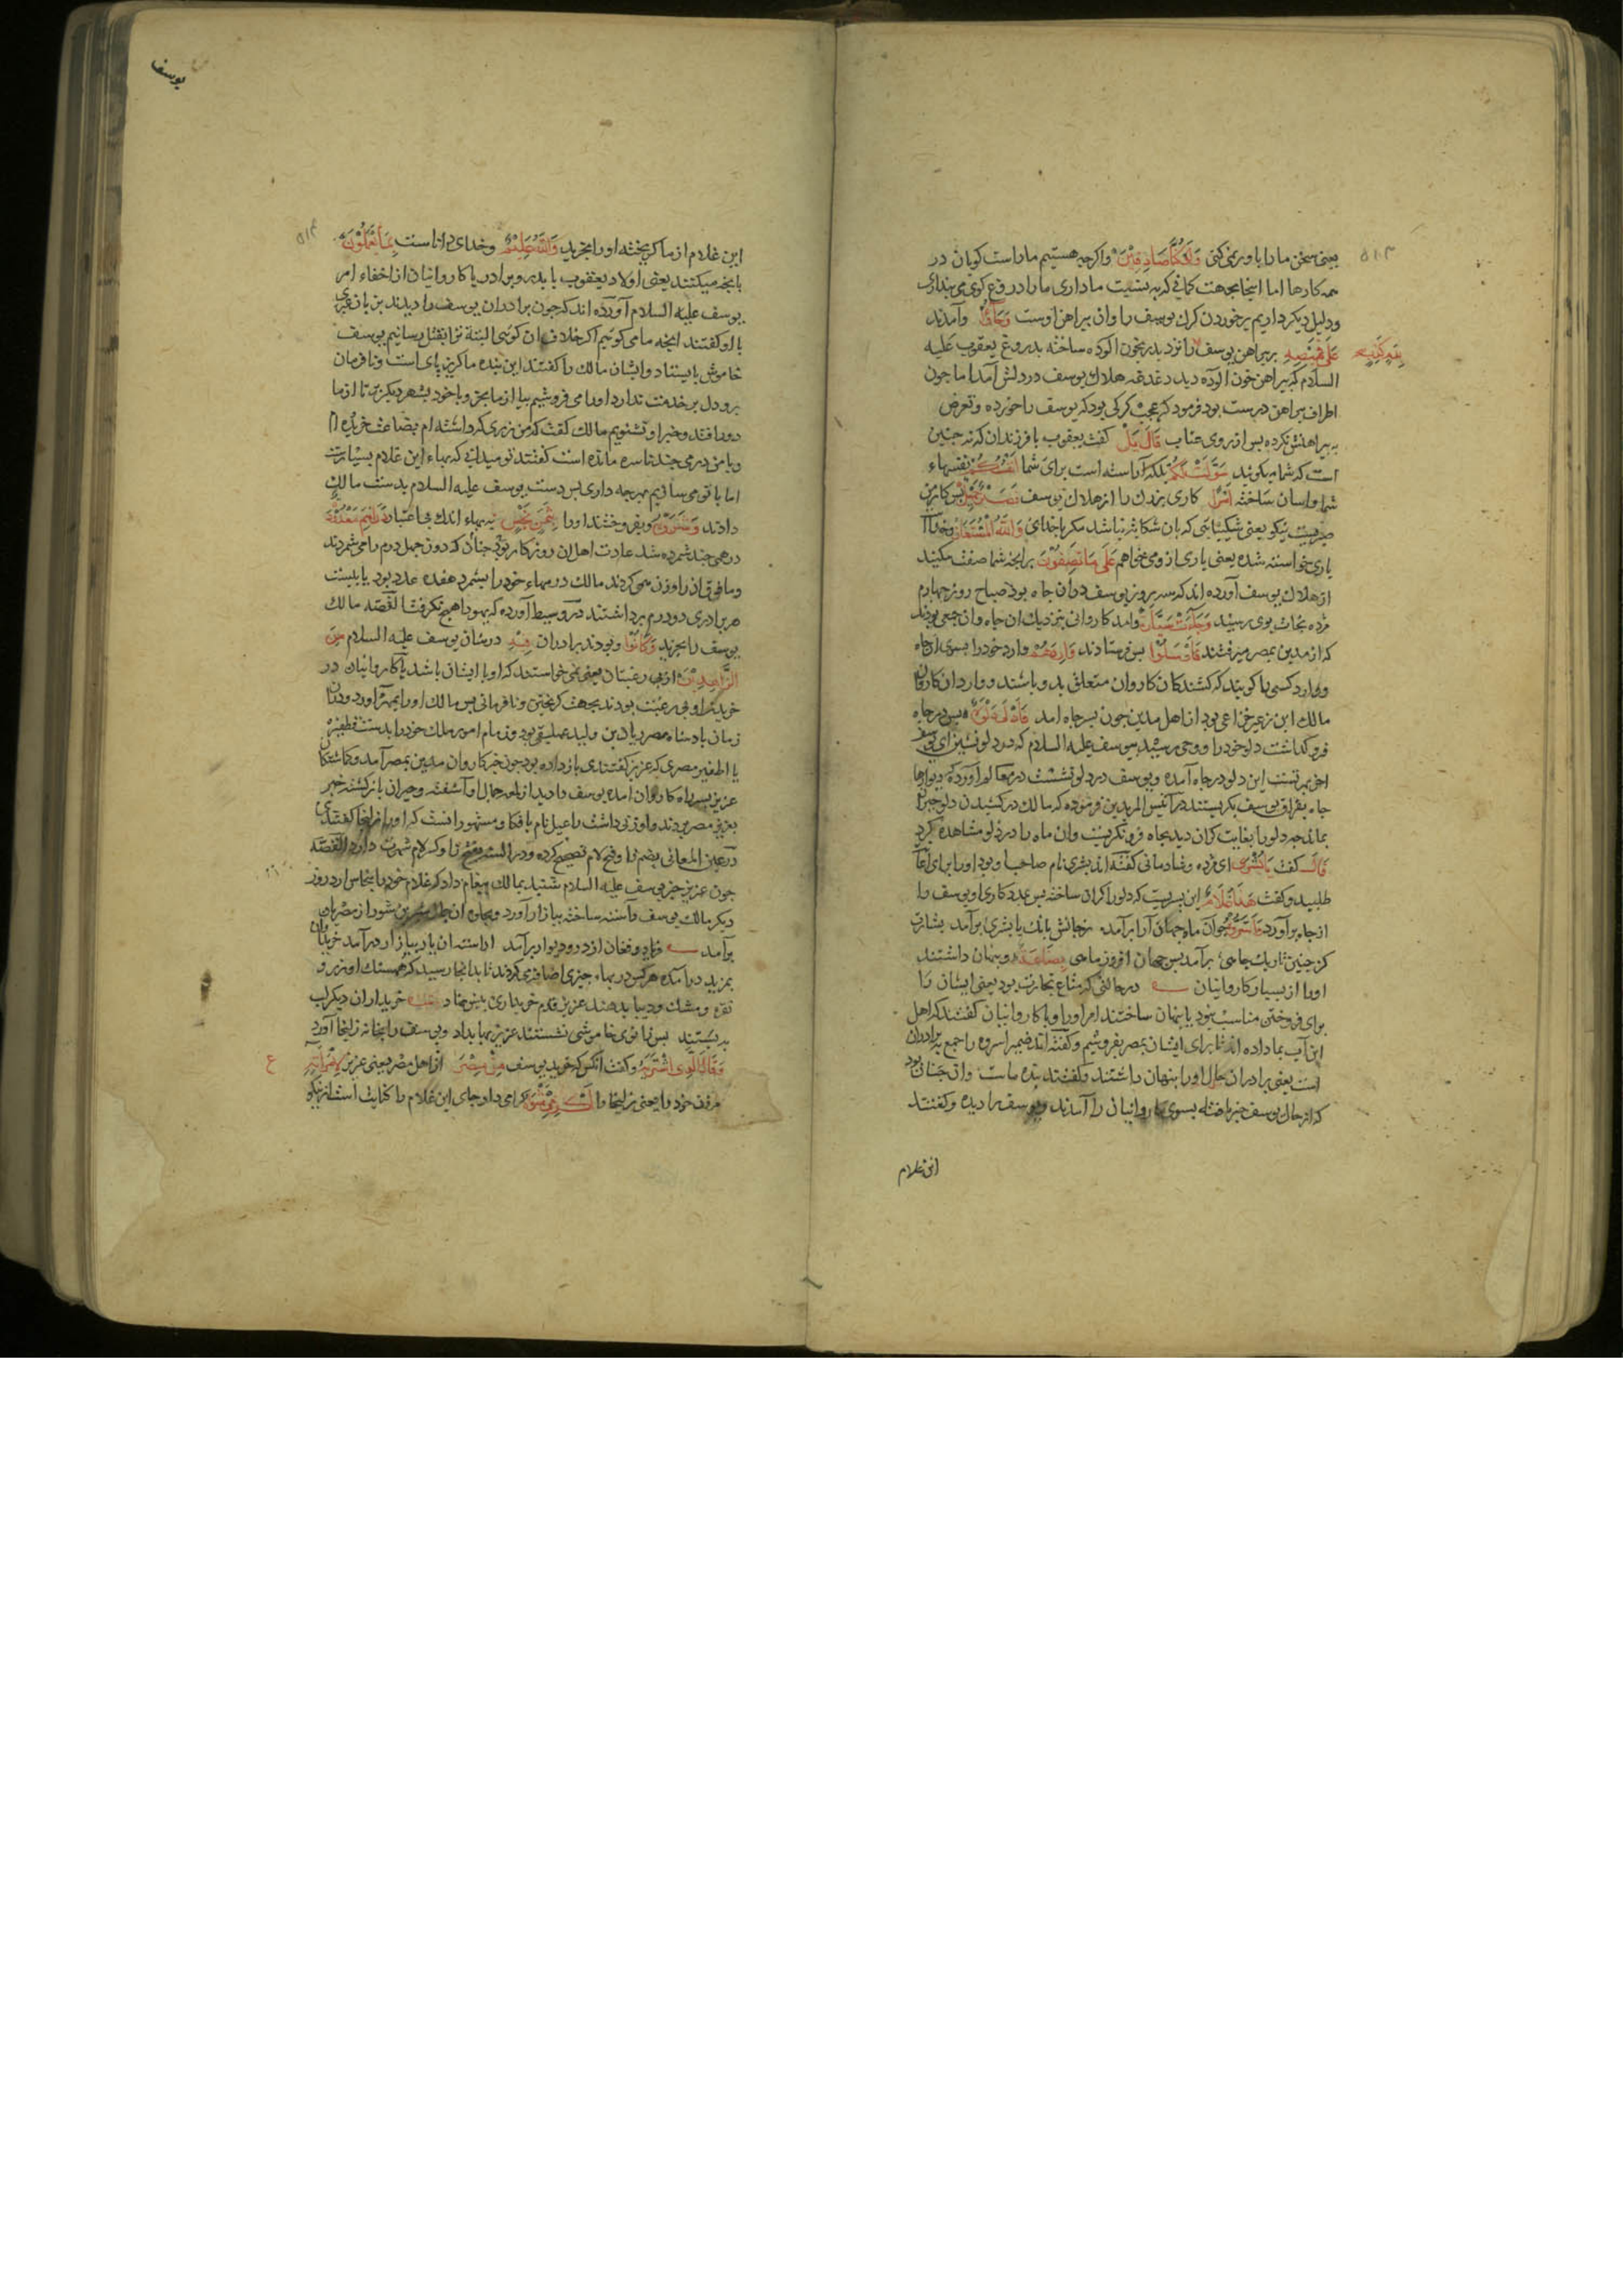 یعنی سخن ما را باور نمی کنی وَلَوْ كُنَّا صَادِقِيْنَ واکرچه هستیم ما راست کویان در
همه کارها اما اینجا بجهت کمانی که به نسبت ما داری ما را دروغ کوی می پنداری
ودلیل دیکر داریم برخوردن کرک یوسف را وان پیراهن اوست وَجَاؤُا وآمدند
عَلٰى قَمِيْصِهِ بر پیراهن یوسف را نزد پدر بخون الوده ساخته بدروغ یعقوب علیه
السلام که پیراهن خون الوده دید دغدغه هلاك یوسف در دلش آمد اما جون
اطراف پیراهن درست بود فرمود که عجب کرکی بود که یوسف را خورده وتعرض
به پیراهنش نکرده پس از روی عتاب قَالَ بَلْ کفت یعقوب با فرزندان که نه جنین
است که شما میکویند سَوَّلَتْ لَكُمْ بلکه آراسته است برای شما اَنْفُسُكُمْ نفسهاء
شما واسان ساخته اَمْرًا کاری بزرك را از هلاك یوسف فَصَبْرٌ جَمِيْلٌ پس کار من
صبریست نیکو یعنی شکیبایی که بان شکایة نباشد مکر باخدای وَاللّٰهُ الْمُسْتَعَانُ وخدا
یاری خواسته شده یعنی یاری ازو می خواهم عَلٰى مَا تَصِفُوْنَ بر انچه شما صفت میکنید
از هلاك یوسف آورده اند که سه روز یوسف دران جاه بود صباح روز جهارم
مژده نجات بوی رسید وَجَاءَتْ سَيَّارَةٌ وامد کاروانی بنزدیك ان جاه وان جمعی بودند
که از مدین بمصر میرفتند فَاَرْسَلُوْا پس فرستادند وَارِدَهُمْ وارد خود را بسوی انجاه
ووارد کسی را کویند که کشندکان کاروان متعلق بدو باشند ووارد ان کاروان
مالك ابن زعیر خزاعی بود از اهل مدین جون بسر جاه امد فَاَدْلٰى دَلْوَهُ پس در جاه
فرو کذاشت دلو خود را ووحی رسید بیوسف علیه السلام که در دلو نشین ای یوسف
جاه بفراق یوسف بکریستند در انیس المریدین فرموده که مالك در کشیدن دلو
بماند جه دلو را بغایت کران دید بجاه فرو نکریست وان ماه را در دلو مشاهده کرد
قَالَ کفت يَا بُشْرٰى ای مژده وشادمانی کفته اند بشری نام صاحب او بود اورا برای
طلبید وکفت هٰذَا غُلَامٌ این پسریست که دلو را کران ساخته پس بمددکاری او یوسف را
از جاه برآورد
کز جنین تاریك جاهی برآمد بس جهان افروز ماهی بِضَاعَةً وپنهان داشتند
اورا از بسیار کاروانیان در حالتی که متاع تجارت بود یعنی ایشان را
برای فروختن مناسب بود یا پنهان ساختند امر اورا وبا کاروانیان کفتند که اهل
این آب بما داده اند تا برای ایشان بمصر بفروشیم وکفته اند ضمیر اسروه راجع ببرادران
است یعنی برادران حال اورا پنهان داشتند وکفتند بنده ماست وان جنان بود
که از حال یوسف خبر یافته بسوی کاروانیان را آمدند ویوسف را دیده وکفتند
این غلام
بِدَمٍ كَذِبٍ
۵۱۳
یوسف
۵۱۴
این غلام از ما کریخته اورا بخرید وَاللّٰهُ عَلِيْمٌ وخدای داناست بِمَا يَعْمَلُوْنَ
بانچه میکنند یعنی اولاد یعقوب با پدر وبرادر یا کاروانیان از اخفاء امر
یوسف علیه السلام آورده اند که جون برادران یوسف را دیدند بزبان عبری
با او کفتند انچه ما می کوئیم اکر خلاف ان کوئی البتة ترا بقتل رسانیم یوسف
خاموش بایستاد وایشان مالك را کفتند این بنده ما کریز پای است ونا فرمان
برو دل بر خدمت ندارد اورا می فروشیم بیا از ما بخر وباخود بشهر دیکر بر تا از ما
دور افتد وخبر او نشنویم مالك کفت که من زری که داشته ام بضاعت خریده ام
وبا من درمی جند ناسره مانده است کفتند تو میدانی که بهاء این غلام بسیارست
اما با تو می سازیم بهرجه داری پس دست یوسف علیه السلام بدست مالك
دادند وَشَرَوْهُ وبفروختند اورا بِثَمَنٍ بَخْسٍ به بهاء اندك بی اعتبار دَرَاهِمَ مَعْدُوْدَةٍ
درهمی جند شمرده شد عادت اهل ان روزکار بود جنان که دون جهل درم را می شمردند
وما فوق ان را وزن می کردند مالك درمهاء خود را بشمرد هفده عدد بود یا بیست
هر برادری دو درم برداشتند در وسیط آورده که یهودا هیچ نکرفت القصه مالك
یوسف را بخرید وَكَانُوْا وبودند برادران فِيْهِ در شان یوسف علیه السلام مِنَ
الزَّاهِدِيْنَ از بی رغبتان یعنی نمی خواستند که اورا با ایشان باشد یا کاروانیان در
خریدن او بی رغبت بودند بجهت کریختن ونافرمانی پس مالك اورا بمصر آورد ودران
زمان پادشاه مصر ریان بن ولید عملیقی بود وزمام امور ملك خود را بدست قطفیر
یا اطفیر مصری که عزیز کفتندی باز داده بود جون خبر کاروان مدین بمصر آمد
عزیز بسر راه کاروان امده یوسف را دید از لمعه جمال او آشفته وحیران باز کشته خبر
بعزیز مصر بردند واو زنی داشت راعیل نام یا فکا ومشهور انست که اورا زلیخا کفتندی
جون عزیز خبر یوسف علیه السلام شنید بمالك پیغام داد که غلام خود را بنخاس ارد روز
دیکر مالك یوسف را آراسته ساخته ببازار آورد
برآمد فریاد وفغان از در ودیوار برآمد
بمزید درآمده هرکس در بهاء جیزی اضافه می کردند تا بدانجا رسید که همسنك او زر و
نقره ومشك ودیبا بدهند عزیز قدم خریداری پیش نهاد خریداران دیکر لب
ببستند پس زانوی خاموشی نشستند عزیز بها بداد ویوسف را بخانه زلیخا آورد
وَقَالَ الَّذِى اشْتَرٰيهُ وکفت انکس که خرید یوسف مِنْ مِصْرَ از اهل مصر یعنی عزیز لِامْرَاَتِهِ
مر زن خود را یعنی زلیخا را اَكْرِمِيْ مَثْوٰيهُ کرامی دار جای این غلام را کنایت است از نیکو
ع